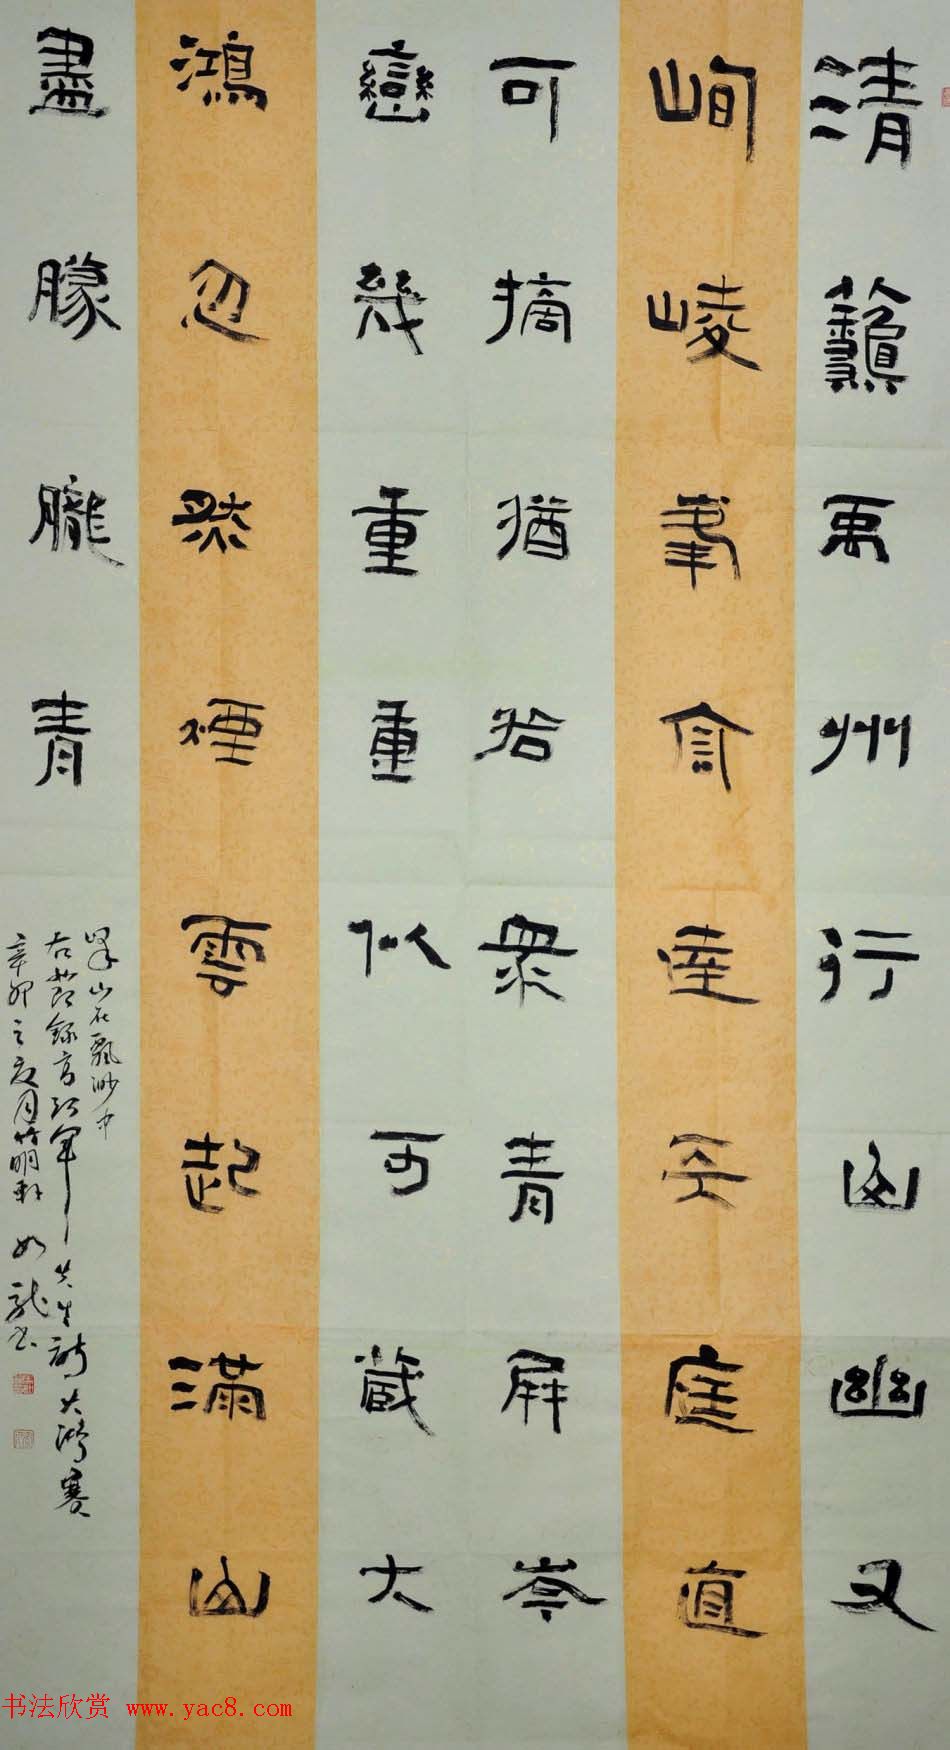 清籟禹州行山幽又
峋崚峯達天庭直
可摘猶谷眾青屏岑
巒幾重重似可藏大
鴻忽然煙雲起滿山
盡朦朧青
峰山在飄渺中
右節錄高軍先生詩大鴻寨
辛卯之夏月竹明軒如龍書
书法欣赏 www.yac8.com